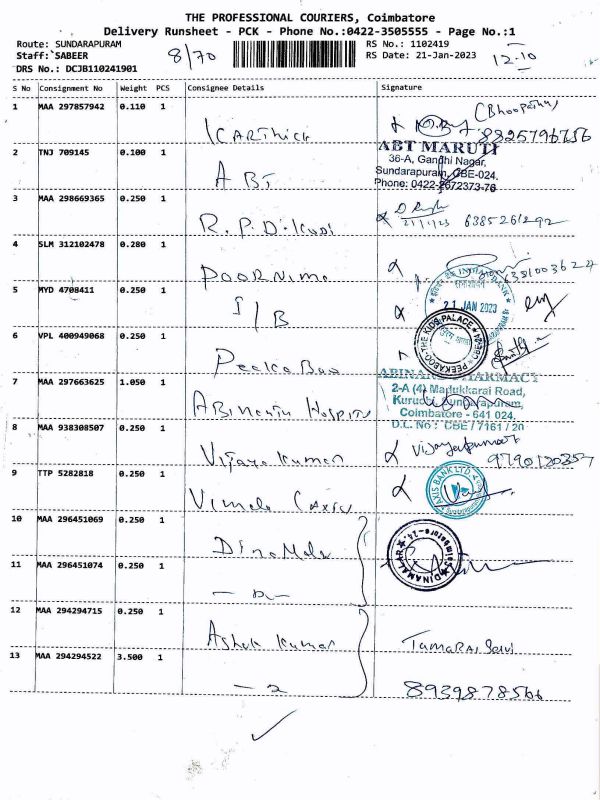 THE PROFESSIONAL COURIERS, Coimbatore
Delivery Runsheet - PCK - Phone No.:0422-3505555 - Page No.:1
Route: SUNDARAPURAM
RS No.: 1102419
Staff: SABEER
8/70
RS Date: 21-Jan-2023
12.10
DRS No.: DCJB110241901
S No Consignment No Weight PCS Consignee Details Signature
1 MAA 297857942 0.110 1
KARTHICK
(Bhoopathy)
8825796756
2 TNJ 709145 0.100 1
ABT
ABT MARUTI
36-A, Gandhi Nagar,
Sundarapuram, CBE-024.
Phone: 0422-2672373-76
3 MAA 298669365 0.250 1
R.P.D.
21/1/23 6385261292
4 SLM 312102478 0.280 1
POORNIMA
5 MYD 4708411 0.250 1
I/B
INDIAN BANK
21 JAN 2023
6 VPL 400949068 0.250 1
Peeka Boo
PEEKABOO-THE KIDS PALACE
7 MAA 297663625 1.050 1
ABINAND PHARMACY
2-A (4) Madukkarai Road,
Kurudi, Sundarapuram,
Coimbatore - 641 024.
D.L. No : CBE / 7161 / 20
8 MAA 938308507 0.250 1
Vijaya Kumar
9790120357
9 TTP 5282818 0.250 1
Vimala (Axis)
AXIS BANK LTD
10 MAA 296451069 0.250 1
Dinamala
DINAMALAR
Coimbatore-24
11 MAA 296451074 0.250 1
12 MAA 294294715 0.250 1
Ashok Kumar
TAMARAI Selvi
13 MAA 294294522 3.500 1
8939878566